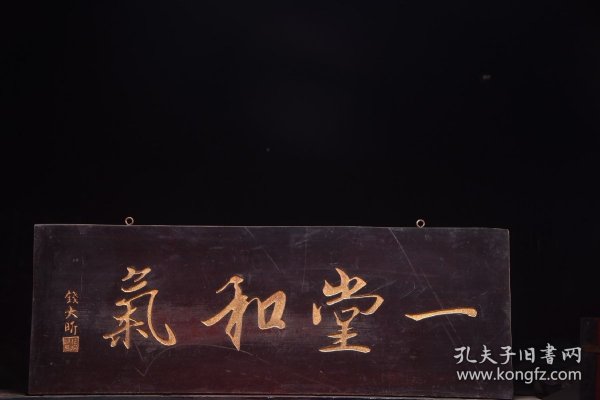 一堂和氣
錢大昕
孔夫子旧書网
www.kongfz.com